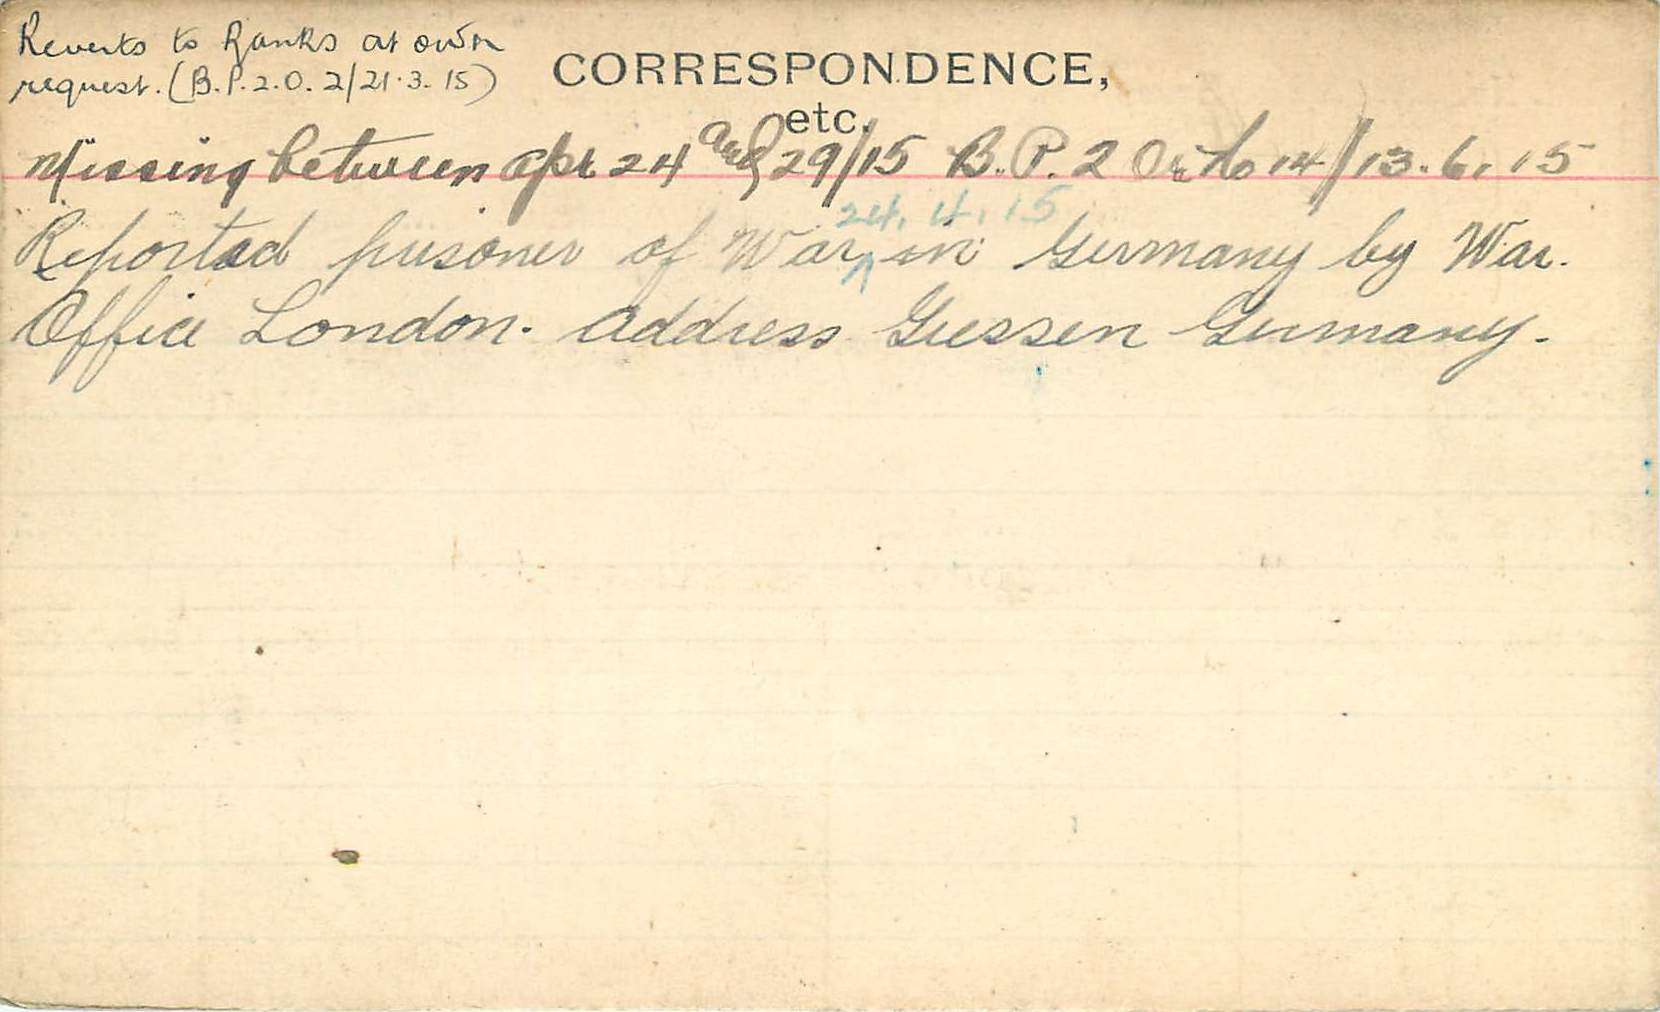 Reverts to Ranks at own
request. (B.P.2.O. 2/21.3.15)
CORRESPONDENCE,
etc.
Missing between Apr 24 and 29/15 B.P. 2 Or No 14/13.6.15
24.4.15
Reported prisoner of War ^ in Germany by War.
Office London. Address Giessen Germany.